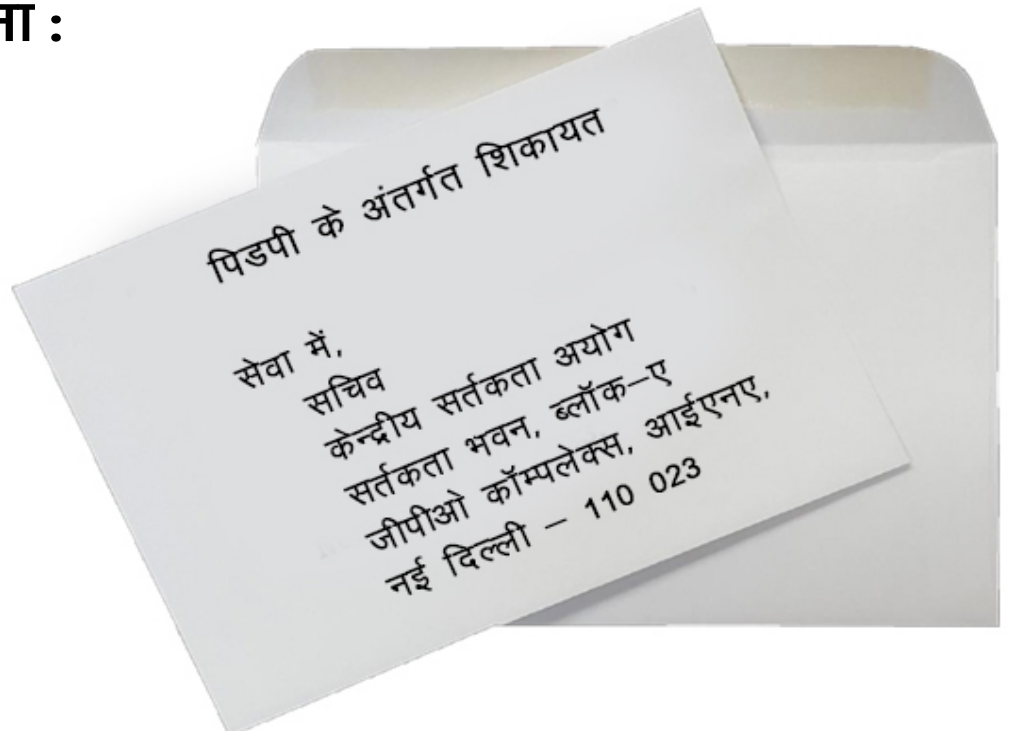 पिडपी के अंतर्गत शिकायत
सेवा में,
सचिव
केन्द्रीय सर्तकता अयोग
सर्तकता भवन, ब्लॉक–ए
जीपीओ कॉम्पलेक्स, आईएनए,
नई दिल्ली – 110 023